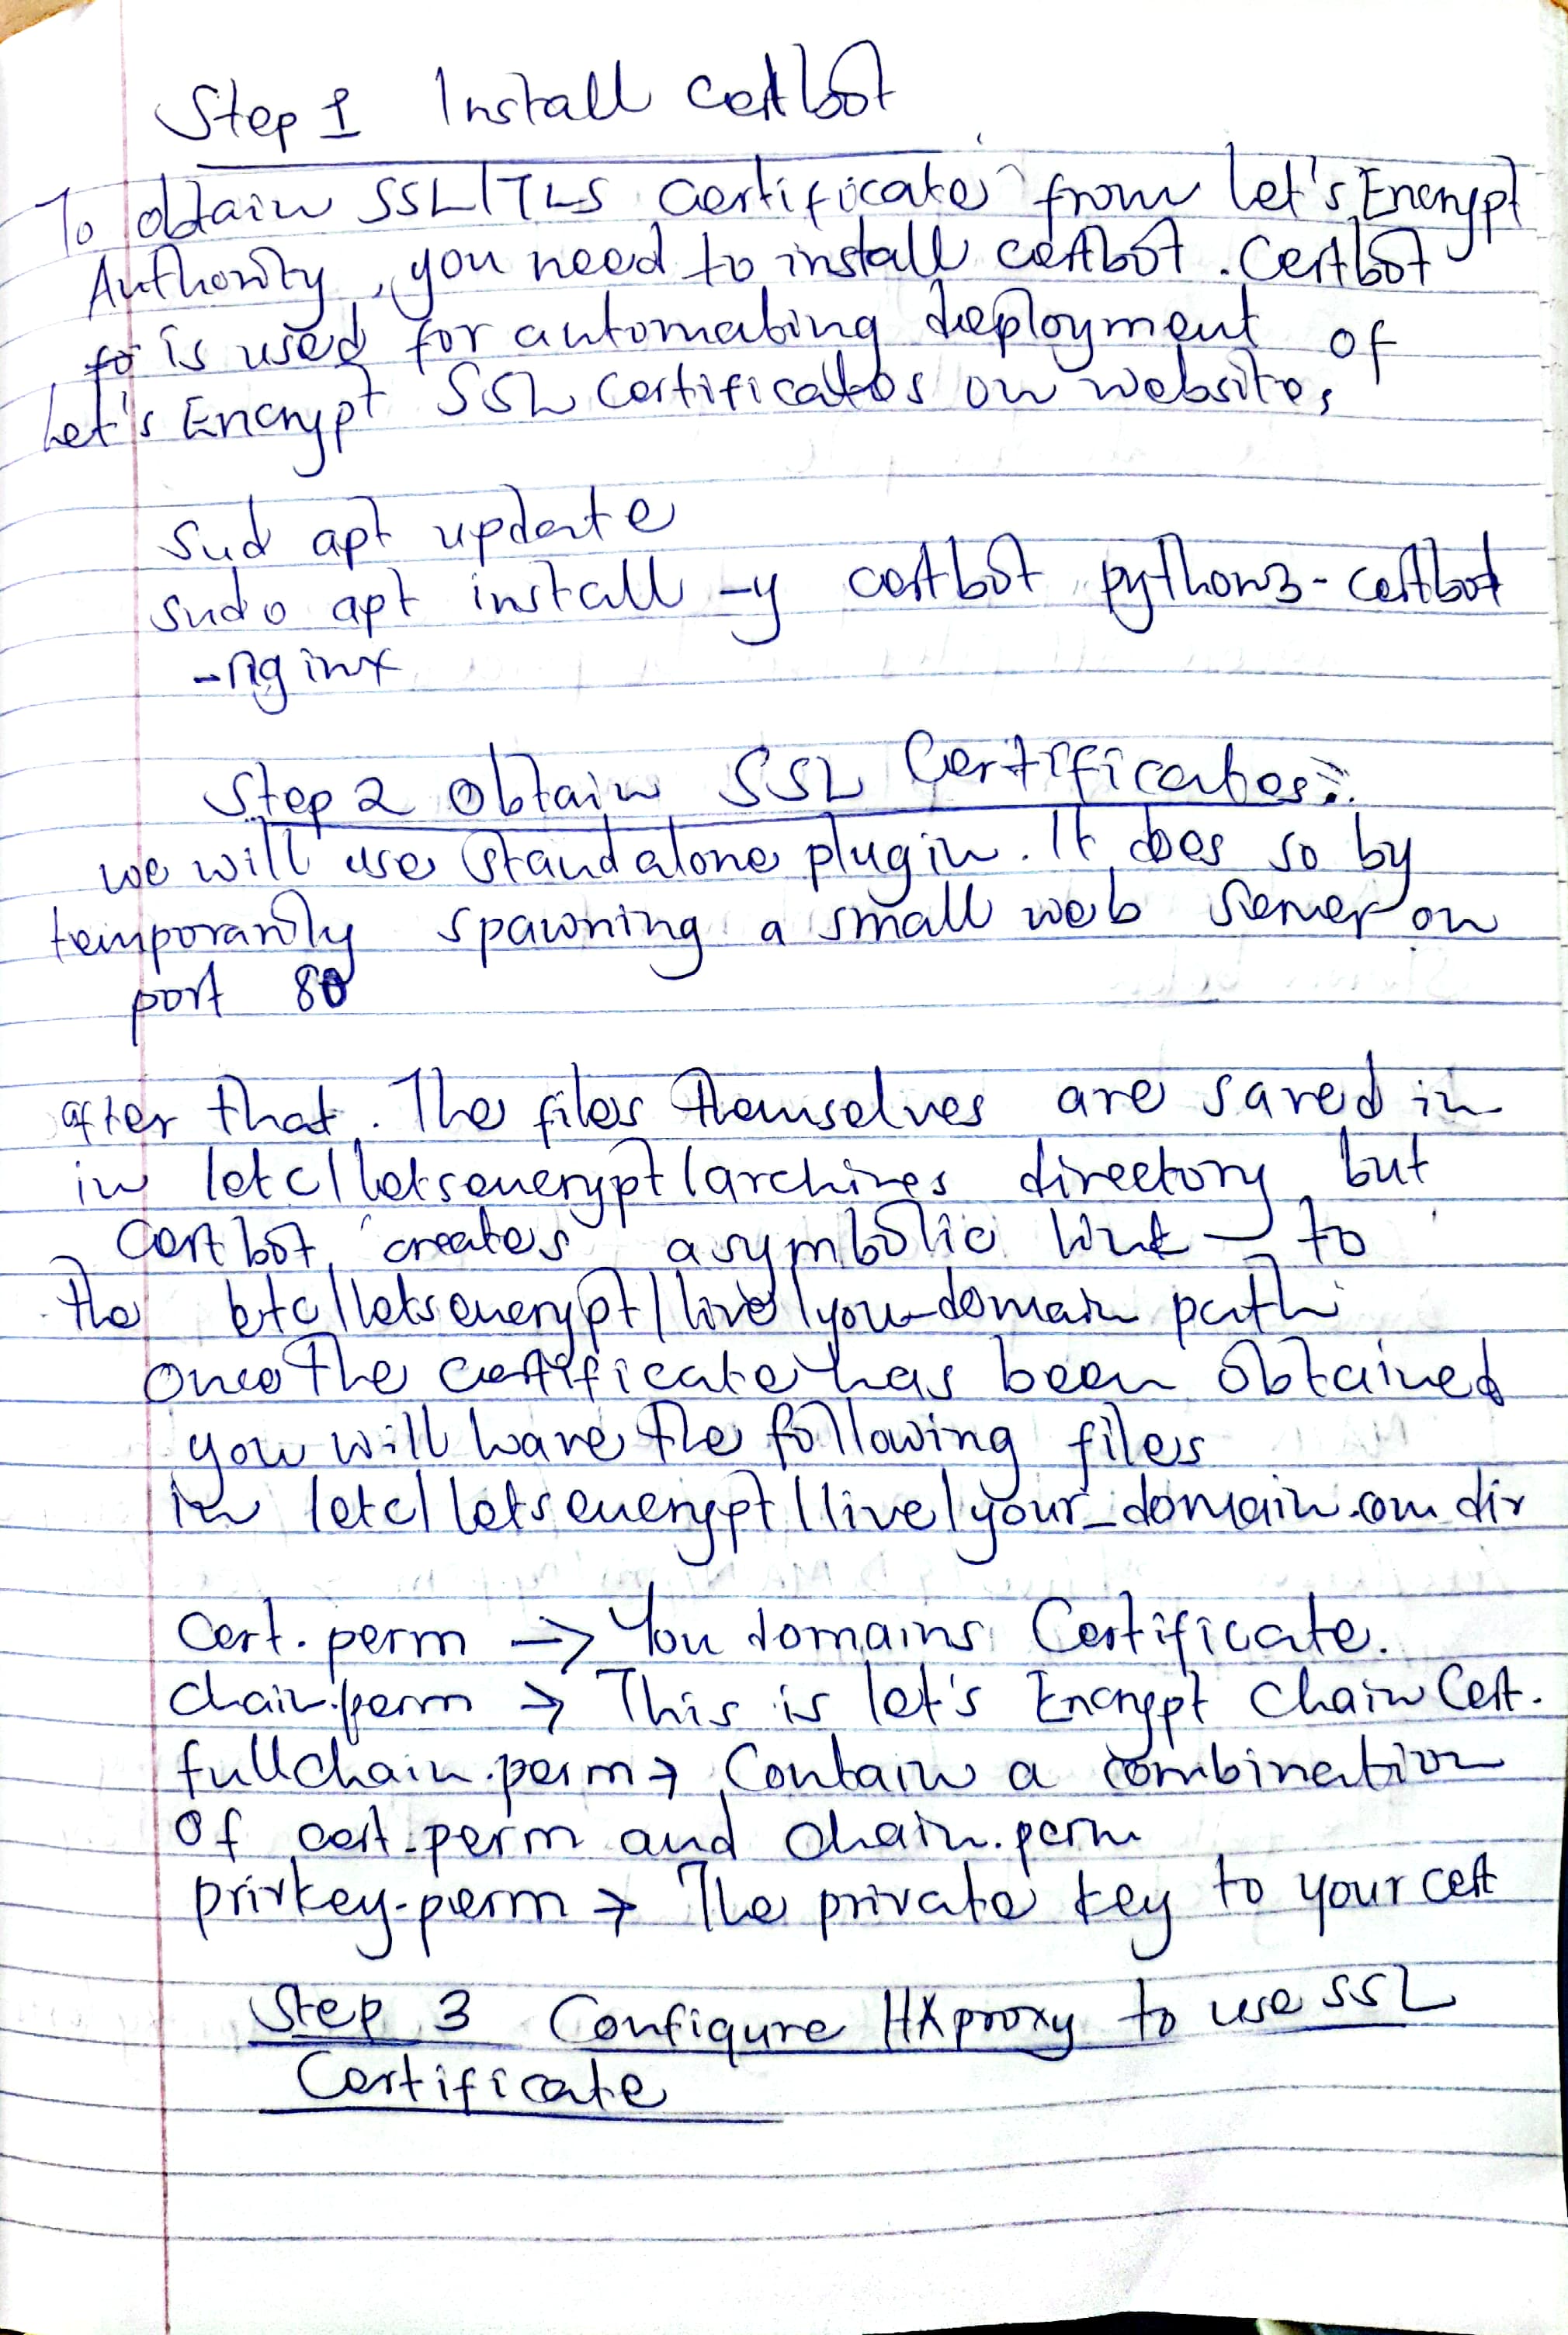 Step 1 Install certbot
To obtain SSL/TLS certificate from let's Encrypt
Authority, you need to install certbot. Certbot
to is used for automating deployment of
Let's Encrypt SSL certificates on website,
sud apt update
sudo apt install -y certbot python3-certbot
-nginx
Step 2 Obtain SSL Certificates:
we will use standalone plugin. It does so by
temporarily spawning a small web server on
port 80
after that. The files themselves are saved in
in /etc/letsencrypt/archives directory, but
certbot creates a symbolic link to
the etc/letsencrypt/live/you-domain path
once the certificate has been obtained
you will have the following files
in /etc/letsencrypt/live/your_domain.com dir
Cert.perm -> You domains Certificate.
chain.perm -> This is let's Encrypt chain Cert.
fullchain.perm -> Contain a combination
of cert.perm and chain.perm
privkey.perm -> The private key to your cert
Step 3 Configure HAproxy to use SSL
Certificate